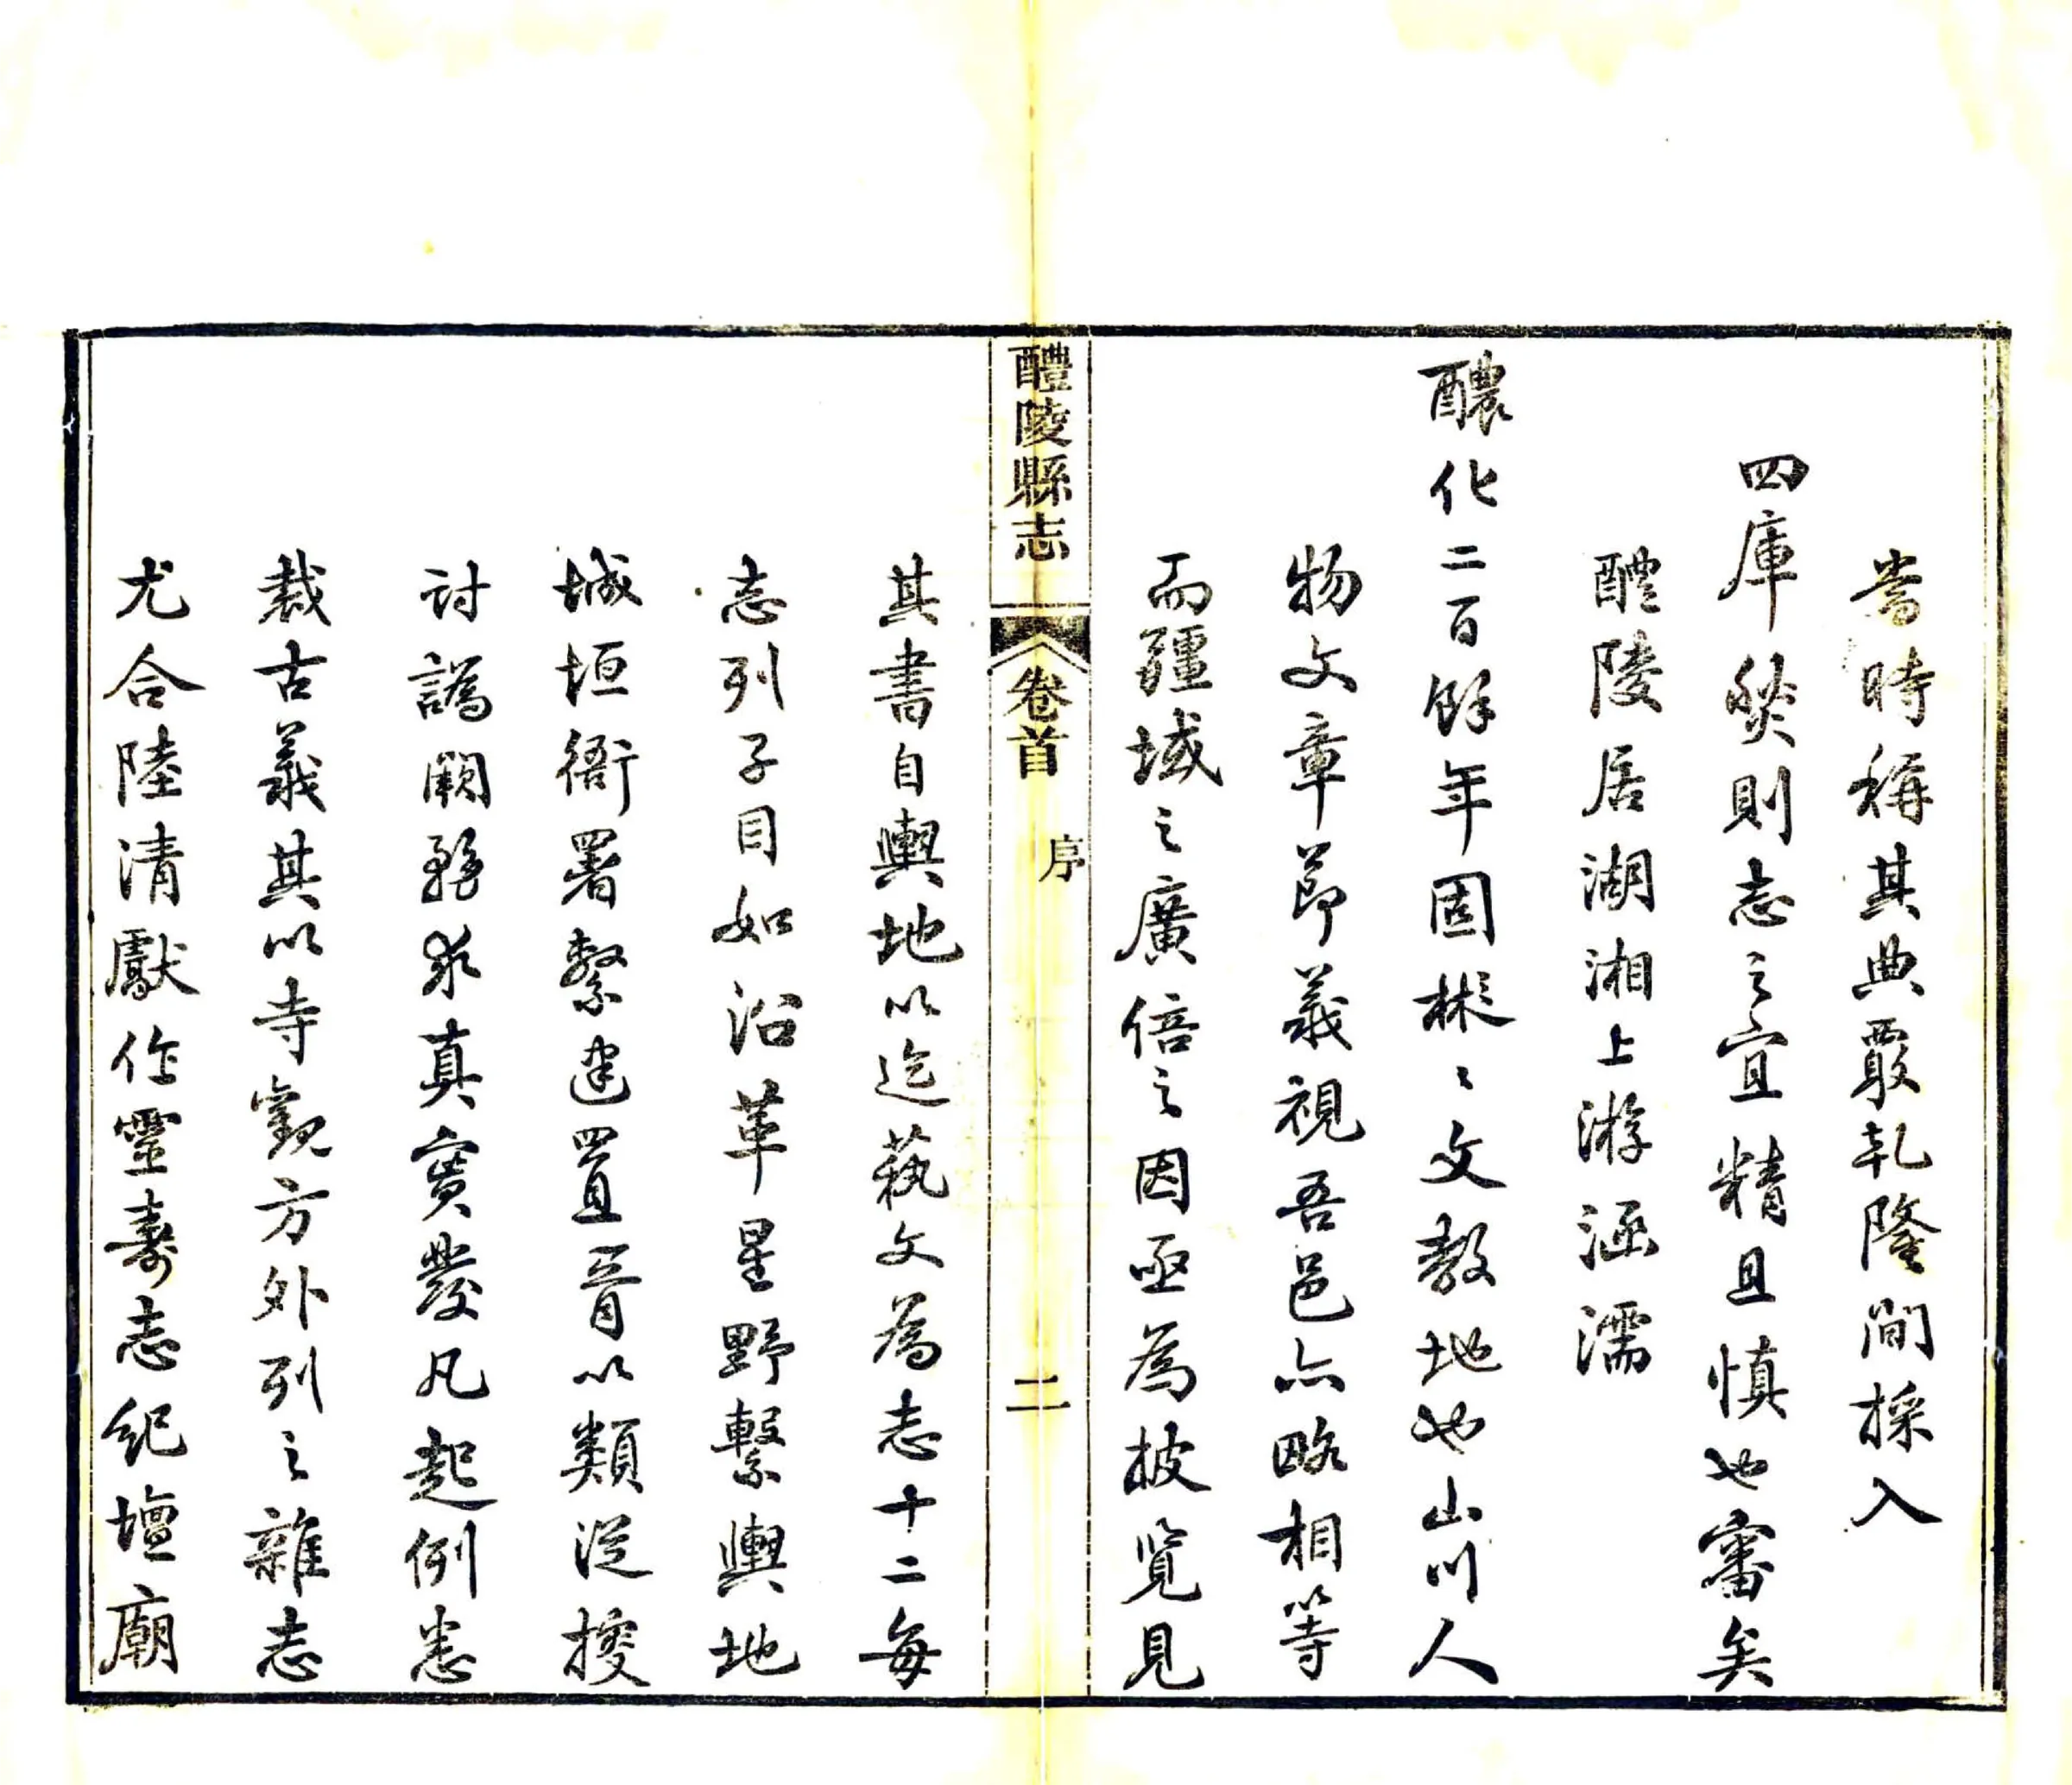 當時稱其典覈乾隆間採入
四庫然則志之宜精且慎也審矣
醴陵居湖湘上游涵濡
醲化二百餘年固彬〻文教地也山川人
物文章節義視吾邑亦略相等
而疆域之廣倍之因亟為披覽見
醴陵縣志 卷首 序 二
其書自輿地以迄藝文為志十二每
志列子目如沿革星野繫輿地
城垣衙署繫建置胥以類從搜
討譌闕務求真實發凡起例悉
裁古義其以寺觀方外列之雜志
尤合陸清獻作靈壽志紀壇廟